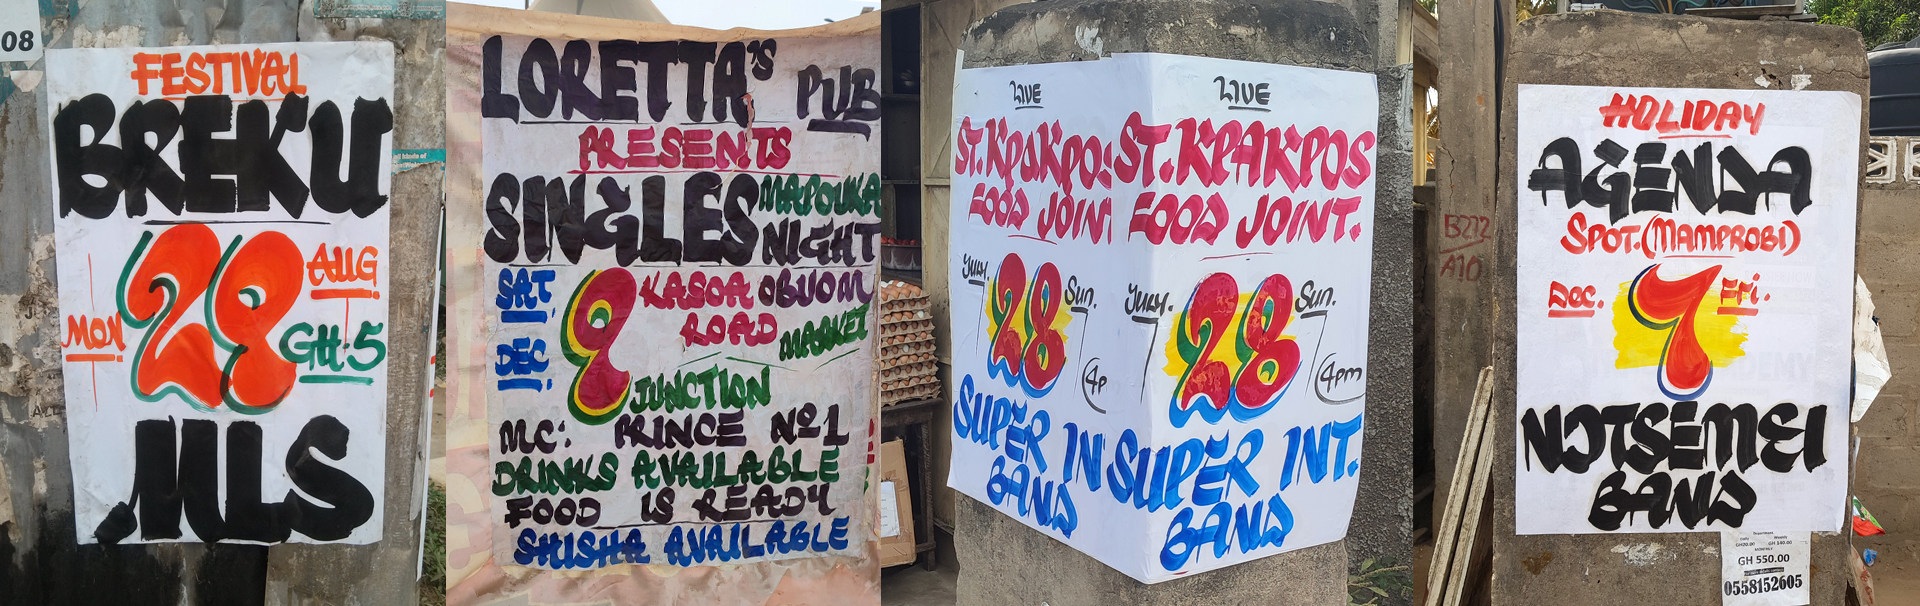 08
FESTIVAL
BREKU
MON
28
AUG
GH:5
MLS
LORETTA'S
PUB
PRESENTS
SINGLES
MAPOUKA
NIGHT
SAT
DEC
9
KASOA OBUOM
ROAD
MARKET
JUNCTION
MC: PRINCE Nº1
DRINKS AVAILABLE
FOOD IS READY
SHISHA AVAILABLE
LIVE
ST.KPAKPO
FOOD JOIN
JULY.
28
Sun.
4p
SUPER IN
BAND
LIVE
ST.KPAKPOS
FOOD JOINT.
JULY.
28
Sun.
4pm
SUPER INT.
BAND
B272
A10
HOLIDAY
AGENDA
SPOT.(MAMPROBI)
DEC.
7
Fri.
NOTSEMEI
BAND
GH 550.00
0558152605